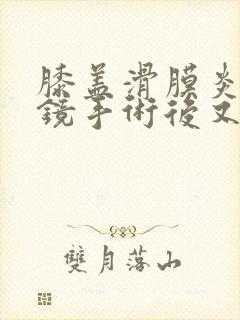 膝盖滑膜炎
鏡手術後又
雙月落山